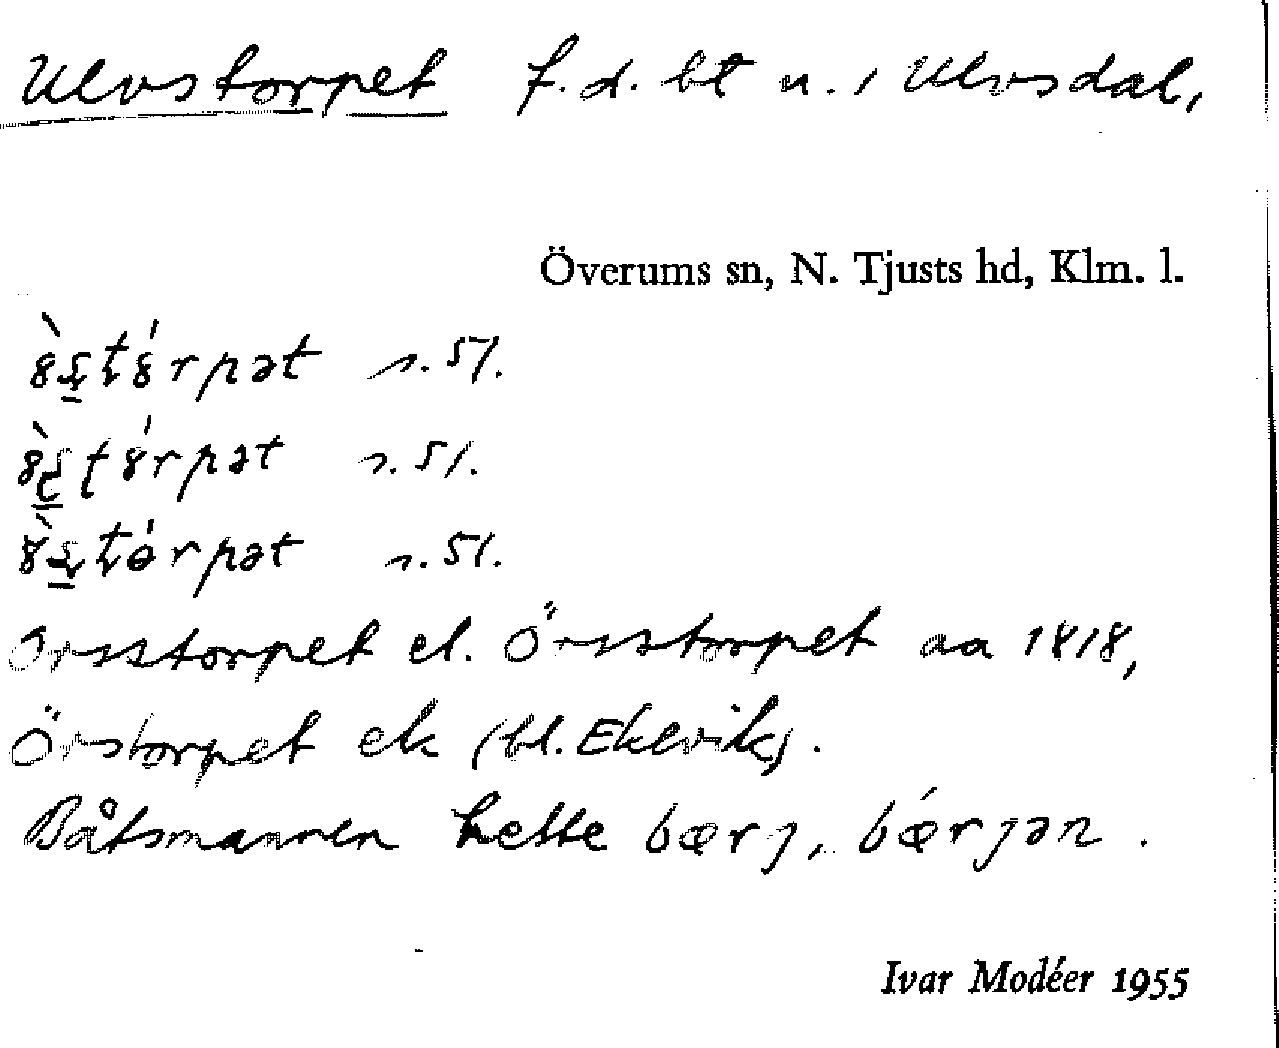 Ulvstorpet f.d. bt u. i Ulvsdal,
Överums sn, N. Tjusts hd, Klm. l.
s. 57.
s. 51.
s. 51.
Orsstorpet el. Örsstorpet aa 1818,
Örstorpet ek (bl. Ekevik).
Båtsmannen hette bærj, bǽrjən.
Ivar Modéer 1955